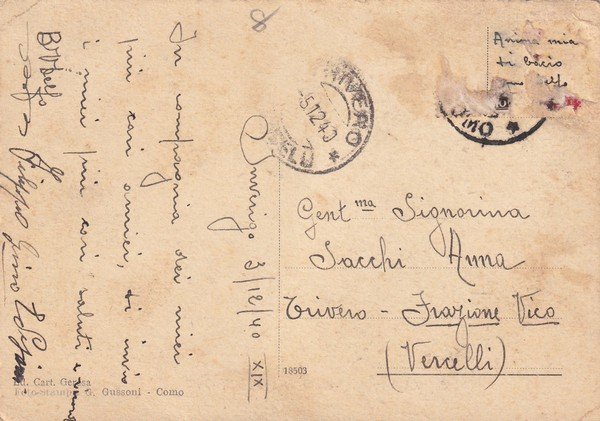 8
In compagnia dei miei
più cari amici, ti invio
i miei più cari saluti e
Inverigo 3/12/40 XIX
TRIVERO
5.12.40
Anima mia
ti bacio
Gent.ma Signorina
Sacchi Anna
Trivero - Frazione Vico
(Vercelli)
18503
Ed. Cart. Gerosa
Foto-stampa G. Gussoni - Como